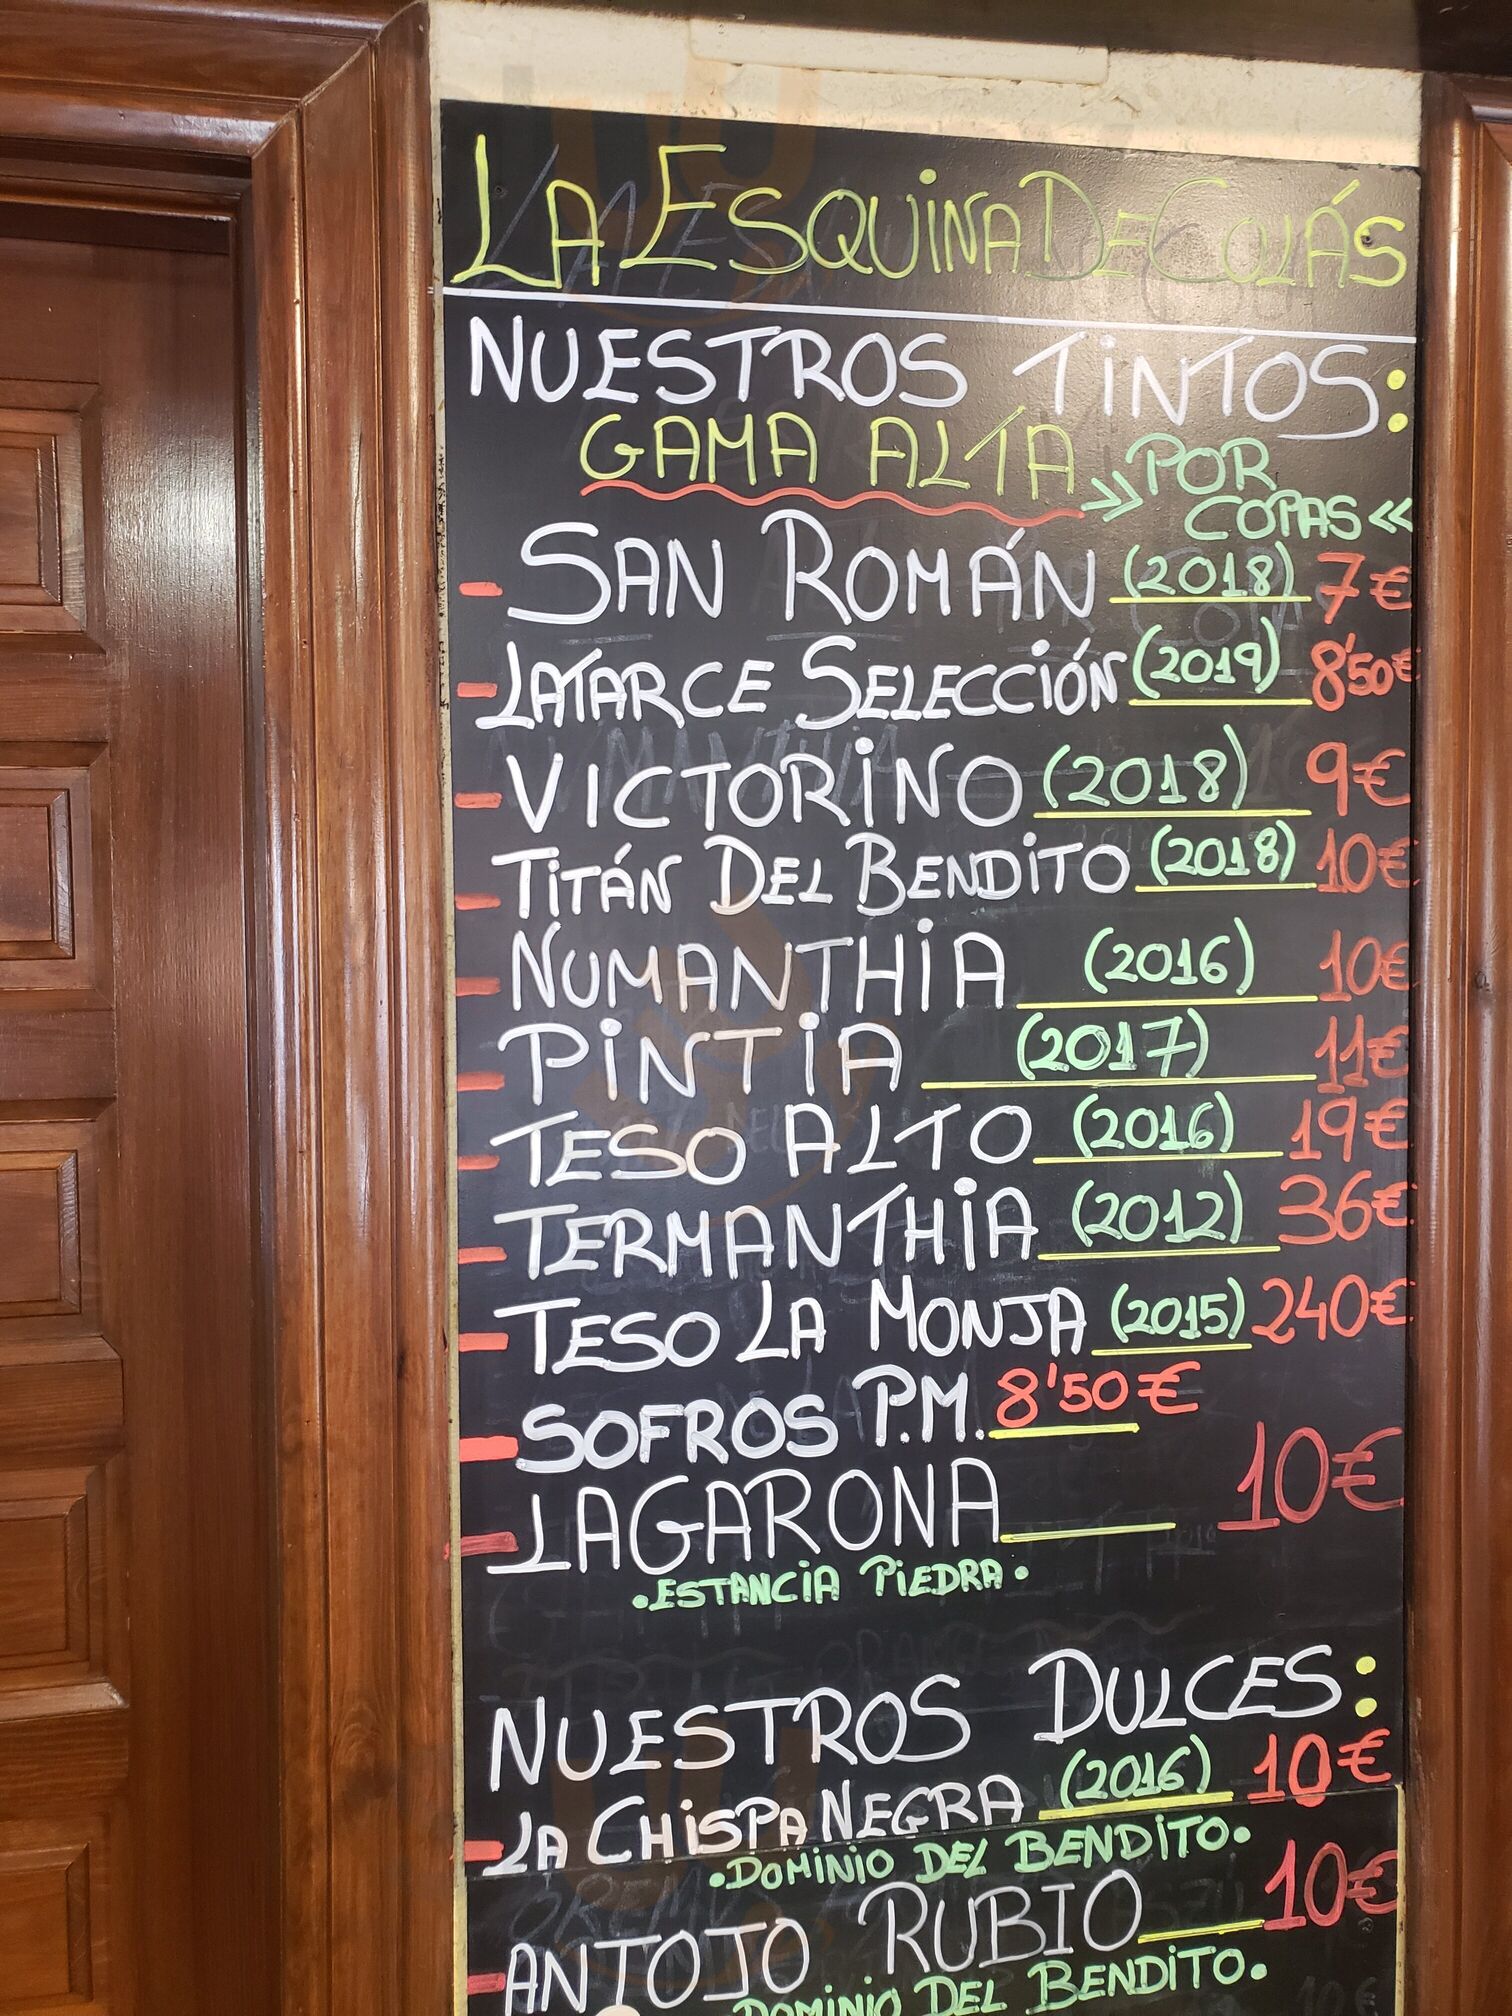 LA ESQUINA DE COLÁS
NUESTROS TINTOS:
GAMA ALTA >> POR
COPAS <<
- SAN ROMÁN (2018) 7€
- LATARCE SELECCIÓN (2019) 8'50€
- VICTORINO (2018) 9€
- TITÁN DEL BENDITO (2018) 10€
- NUMANTHIA (2016) 10€
- PINTIA (2017) 11€
- TESO ALTO (2016) 19€
- TERMANTHIA (2012) 36€
- TESO LA MONJA (2015) 240€
- SOFROS P.M. 8'50€
- LAGARONA 10€
•ESTANCIA PIEDRA•
NUESTROS DULCES:
- LA CHISPA NEGRA (2016) 10€
•DOMINIO DEL BENDITO•
- ANTOJO RUBIO 10€
DOMINIO DEL BENDITO•